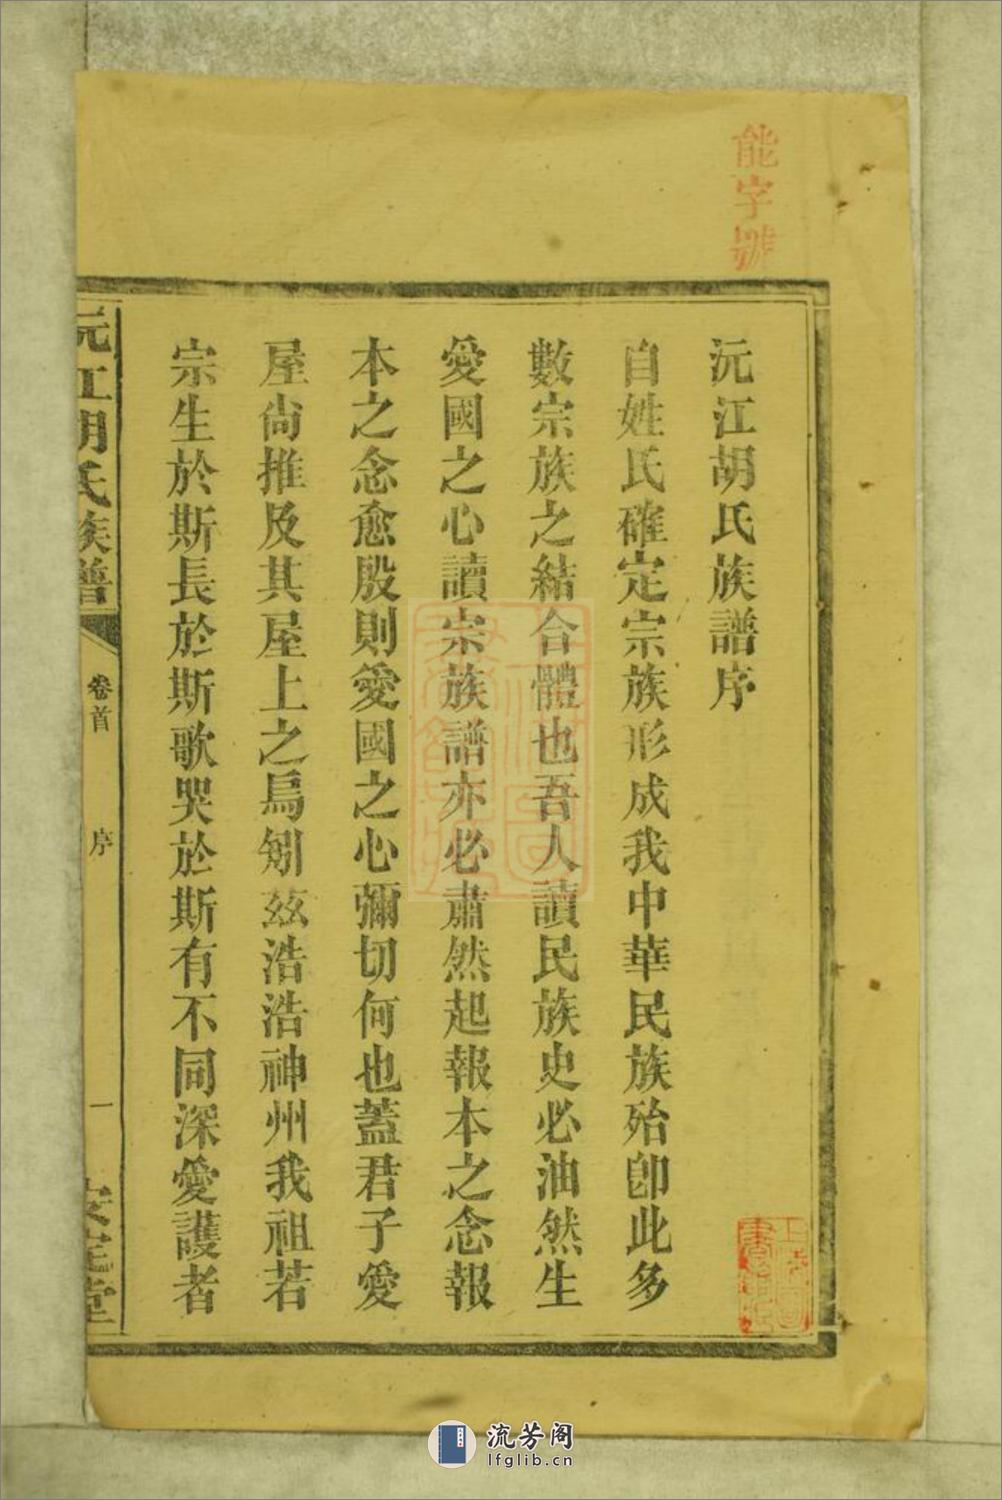 能字號
沅江胡氏族譜序
自姓氏確定宗族形成我中華民族殆卽此多
數宗族之結合體也吾人讀民族史必油然生
愛國之心讀宗族譜亦必肅然起報本之念報
本之念愈殷則愛國之心彌切何也蓋君子愛
屋尙推及其屋上之烏矧茲浩浩神州我祖若
宗生於斯長於斯歌哭於斯有不同深愛護者
沅江胡氏族譜
卷首
序
一
安定堂
流芳阁
lfglib.cn